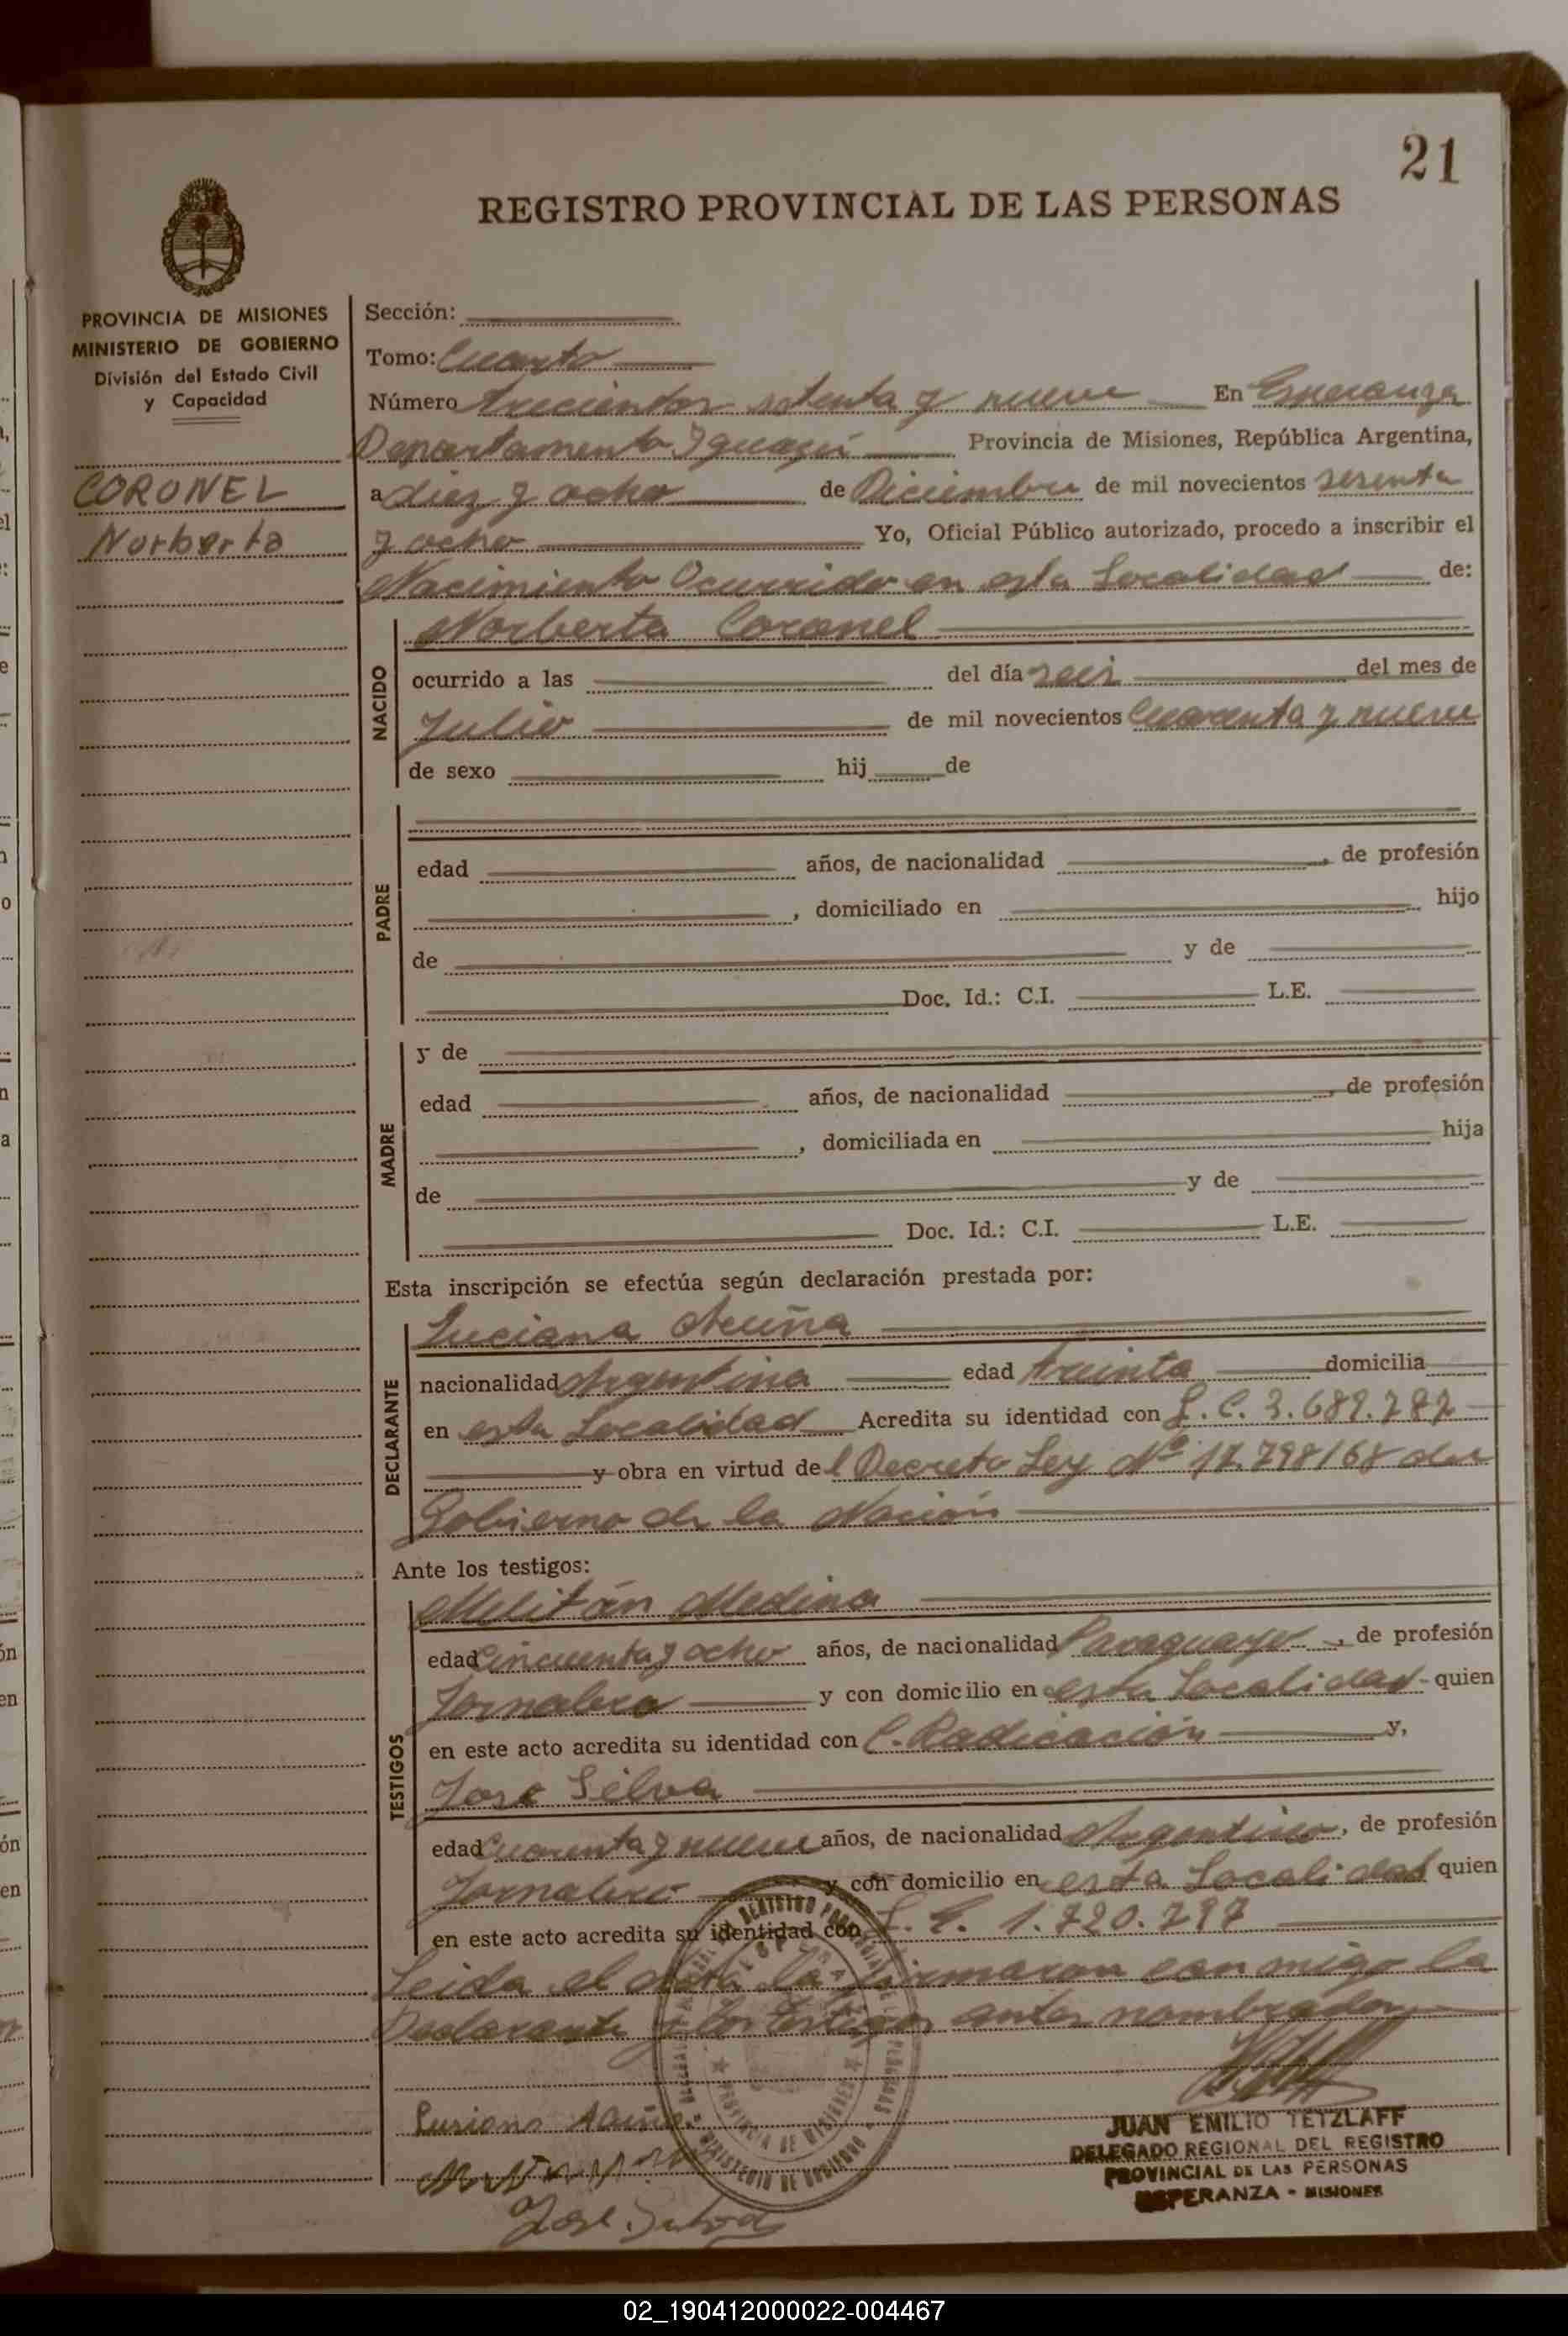 21
REGISTRO PROVINCIAL DE LAS PERSONAS
PROVINCIA DE MISIONES
MINISTERIO DE GOBIERNO
División del Estado Civil
y Capacidad
CORONEL
Norberto
Sección:
Tomo: Cuarto
Número trecientos setenta y nueve En Esperanza
Departamento Iguazú Provincia de Misiones, República Argentina,
a diez y ocho de Diciembre de mil novecientos sesenta
y ocho Yo, Oficial Público autorizado, procedo a inscribir el
Nacimiento Ocurrido en esta Localidad de:
NACIDO
Norberto Coronel
ocurrido a las del día seis del mes de
Julio de mil novecientos Cuarenta y nueve
de sexo hij de
PADRE
edad años, de nacionalidad , de profesión
, domiciliado en hijo
de y de
Doc. Id.: C.I. L.E.
MADRE
y de
edad años, de nacionalidad , de profesión
, domiciliada en hija
de y de
Doc. Id.: C.I. L.E.
Esta inscripción se efectúa según declaración prestada por:
DECLARANTE
Luciana Acuña
nacionalidad Argentina edad treinta domicilia
en esta Localidad Acredita su identidad con L.C. 3.689.787
y obra en virtud del Decreto Ley Nº 17.798/68 del
Gobierno de la Nación
Ante los testigos:
TESTIGOS
Militón Medina
edad Cincuenta y ocho años, de nacionalidad Paraguayo, de profesión
Jornalero y con domicilio en esta Localidad - quien
en este acto acredita su identidad con C. Radicación y,
José Silva
edad Cuarenta y nueve años, de nacionalidad Argentino, de profesión
Jornalero y con domicilio en esta Localidad quien
en este acto acredita su identidad con L.E. 1.720.797
Leida el acta la firmaron conmigo la
Declarante y los testigos antes nombrados
Lusiana Acuña
José Silva
JUAN EMILIO TETZLAFF
DELEGADO REGIONAL DEL REGISTRO
PROVINCIAL DE LAS PERSONAS
ESPERANZA - MISIONES
02_190412000022-004467